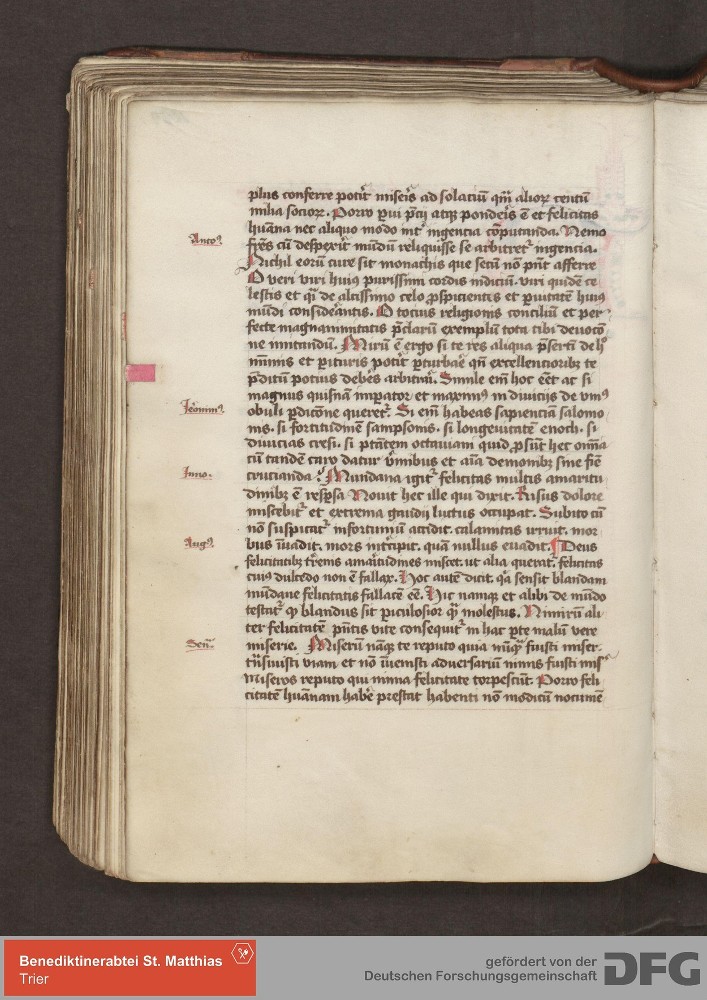 plus conferre potit̄ miseis̄ ad solaciū qm̄ alioꝝ centū
milia socioꝝ. Porro pui p̄cij atqꝫ pondeis̄ ē et felicitas
huāna nec aliquo modo int̄ ingencia cōputanda. Nemo
Anto⁹.
frēs cū despexit̄ mūdū reliquisse se arbitret᷑ ingencia.
Nichil eorū cure sit monachis que secū nō pn̄t afferre
O veri viri huiꝰ purissimi cordis indiciū. viri quidē ce
lestis et q̄ de altissimo celo ꝓspicientis et puitatē huiꝰ
mūdi consideāntis. O tocius religionis conciliū et per
fecte magnanimitatis p̄clarū exemplū tota tibi deuocō
ne imitandū. Mirū ē ergo si te res aliqua p̄sertī de
mīmis et pituris potit̄ pturbae̅ qn̄ excellencioribꝫ te
p̄ditū potius debes̄ arbitrai̅. Simile em̄ hoc eēt ac si
magnus quisnā impator et maximꝰ in diuicijs de vniꝰ
Jeronimꝰ
obuli pdicōne queret᷑. Si em̄ habeas sapienciā salomo
nis. si fortitudinē sampsonis. si longeuitatē enoch. si
diuicias cresi. si ptātem octauiani quid ꝓsūt hec om̄ia
cū tandē caro datur v̄mibus et aīa demonibꝫ sine fiē
Inno.
crucianda. Mundana igit᷑ felicitas multis amaritu
dinibꝫ ē resp̄sa Nouit hec ille qui dixit. Risus dolore
miscebit᷑ et extrema gaudij luctus occupat. Subito cū
nō suspicat᷑ infortuniū accidit. calamitas irruit. mor
Augꝰ.
bus īuadit. mors int̄cipit. quā nullus euadit. Deus
felicitatibꝫ tr̄enis amai̅tudines miscet. ut alia querat᷑. felicitas
cuiꝰ dulcedo non ē fallax. Hoc autē dicit. qa̅ sensit blandam
mūdane felicitatis fallacē eē. Hic namqꝫ et alibi de mūdo
testat᷑ ꝙ blandus sit piculosior qm̄ molestus. Nimirū ali
ter felicitatē pn̄tis vite consequit᷑ in hac pte malū vere
Sen̄.
miserie. Miserū nāqꝫ te reputo quia nūqm̄ fuisti miser.
trn̄siuisti viam et nō īuenisti aduersariū nimis fuisti misꝰ
Miseros reputo qui nimia felicitate torpescūt. Porro feli
citatē huānam habe̅ prestat habenti nō modicū nocumē
Benediktinerabtei St. Matthias
Trier
gefördert von der
Deutschen Forschungsgemeinschaft
DFG